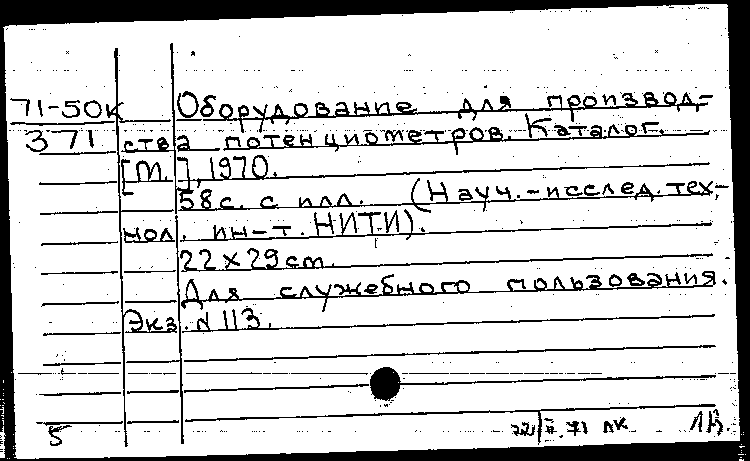 71-50к Оборудование для производ-
371 ства потенциометров. Каталог.
[М.], 1970.
58с. с илл. (Науч.-исслед. тех-
нол. ин-т. НИТИ).
22×29cm.
Для служебного пользования.
Экз. N 113.
5 22/II.71 лк ЛВ.